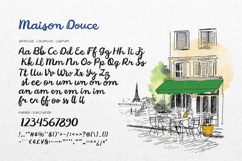 Maison Douce
UPPERCASE - LOWERCASE - LIGATURE
Aa Bb Cc Dd Ee Ff Gg Hh Ii Jj
Kk Ll Mm Nn Oo Pp Qq Rr Ss Tt
Uu Vv Ww Xx Yy Zz as es is os us
st ee or um un on om
an am en em in im
fr er ff oo ss ll il
NUMBERS - PUNCTUATION
1234567890